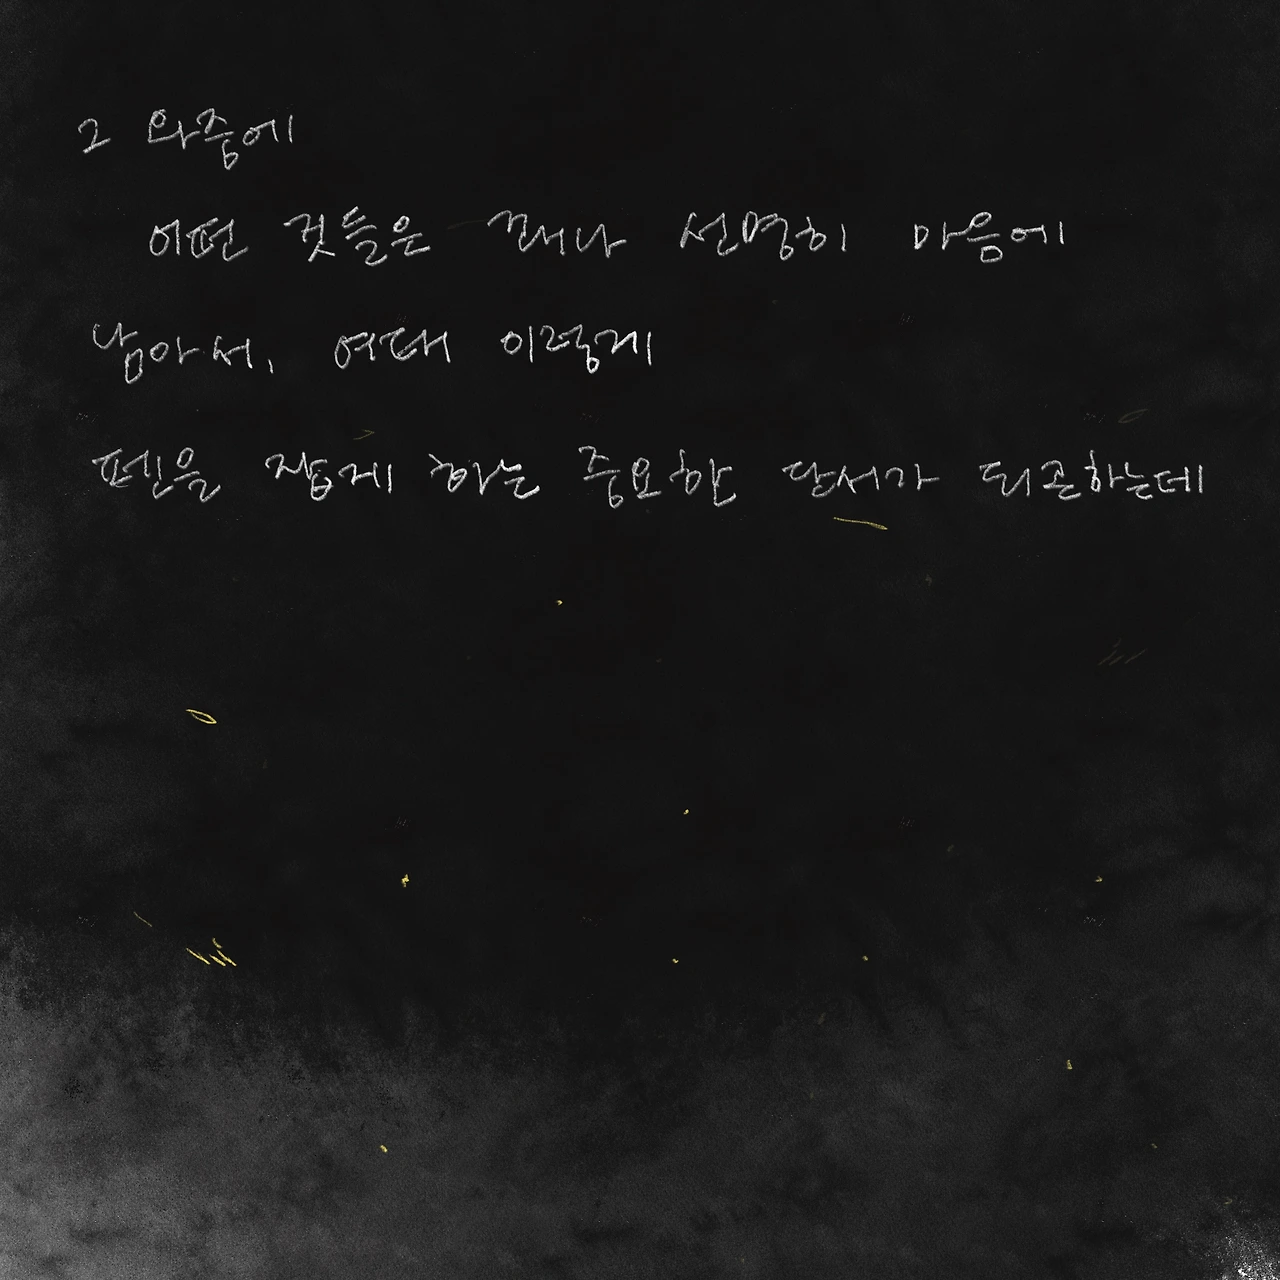 그 와중에
어떤 것들은 꽤나 선명히 마음에
남아서, 여태 이렇게
펜을 잡게 하는 중요한 단서가 되곤하는데